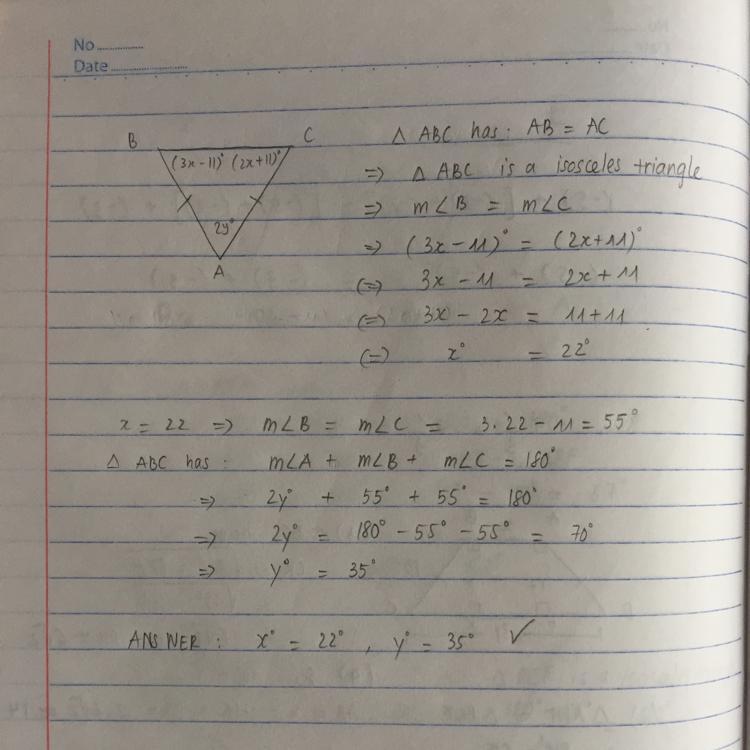 No..............
Date........................
B
C
(3x-11)° (2x+11)°
2y°
A
△ ABC has: AB = AC
=> △ ABC is a isosceles triangle
=> m∠B = m∠C
=> (3x-11)° = (2x+11)°
(=) 3x - 11 = 2x + 11
(=) 3x - 2x = 11 + 11
(=) x° = 22°
x = 22 => m∠B = m∠C = 3.22 - 11 = 55°
△ ABC has: m∠A + m∠B + m∠C = 180°
=> 2y° + 55° + 55° = 180°
=> 2y° = 180° - 55° - 55° = 70°
=> y° = 35°
ANSWER : x° = 22° , y° = 35° ✓